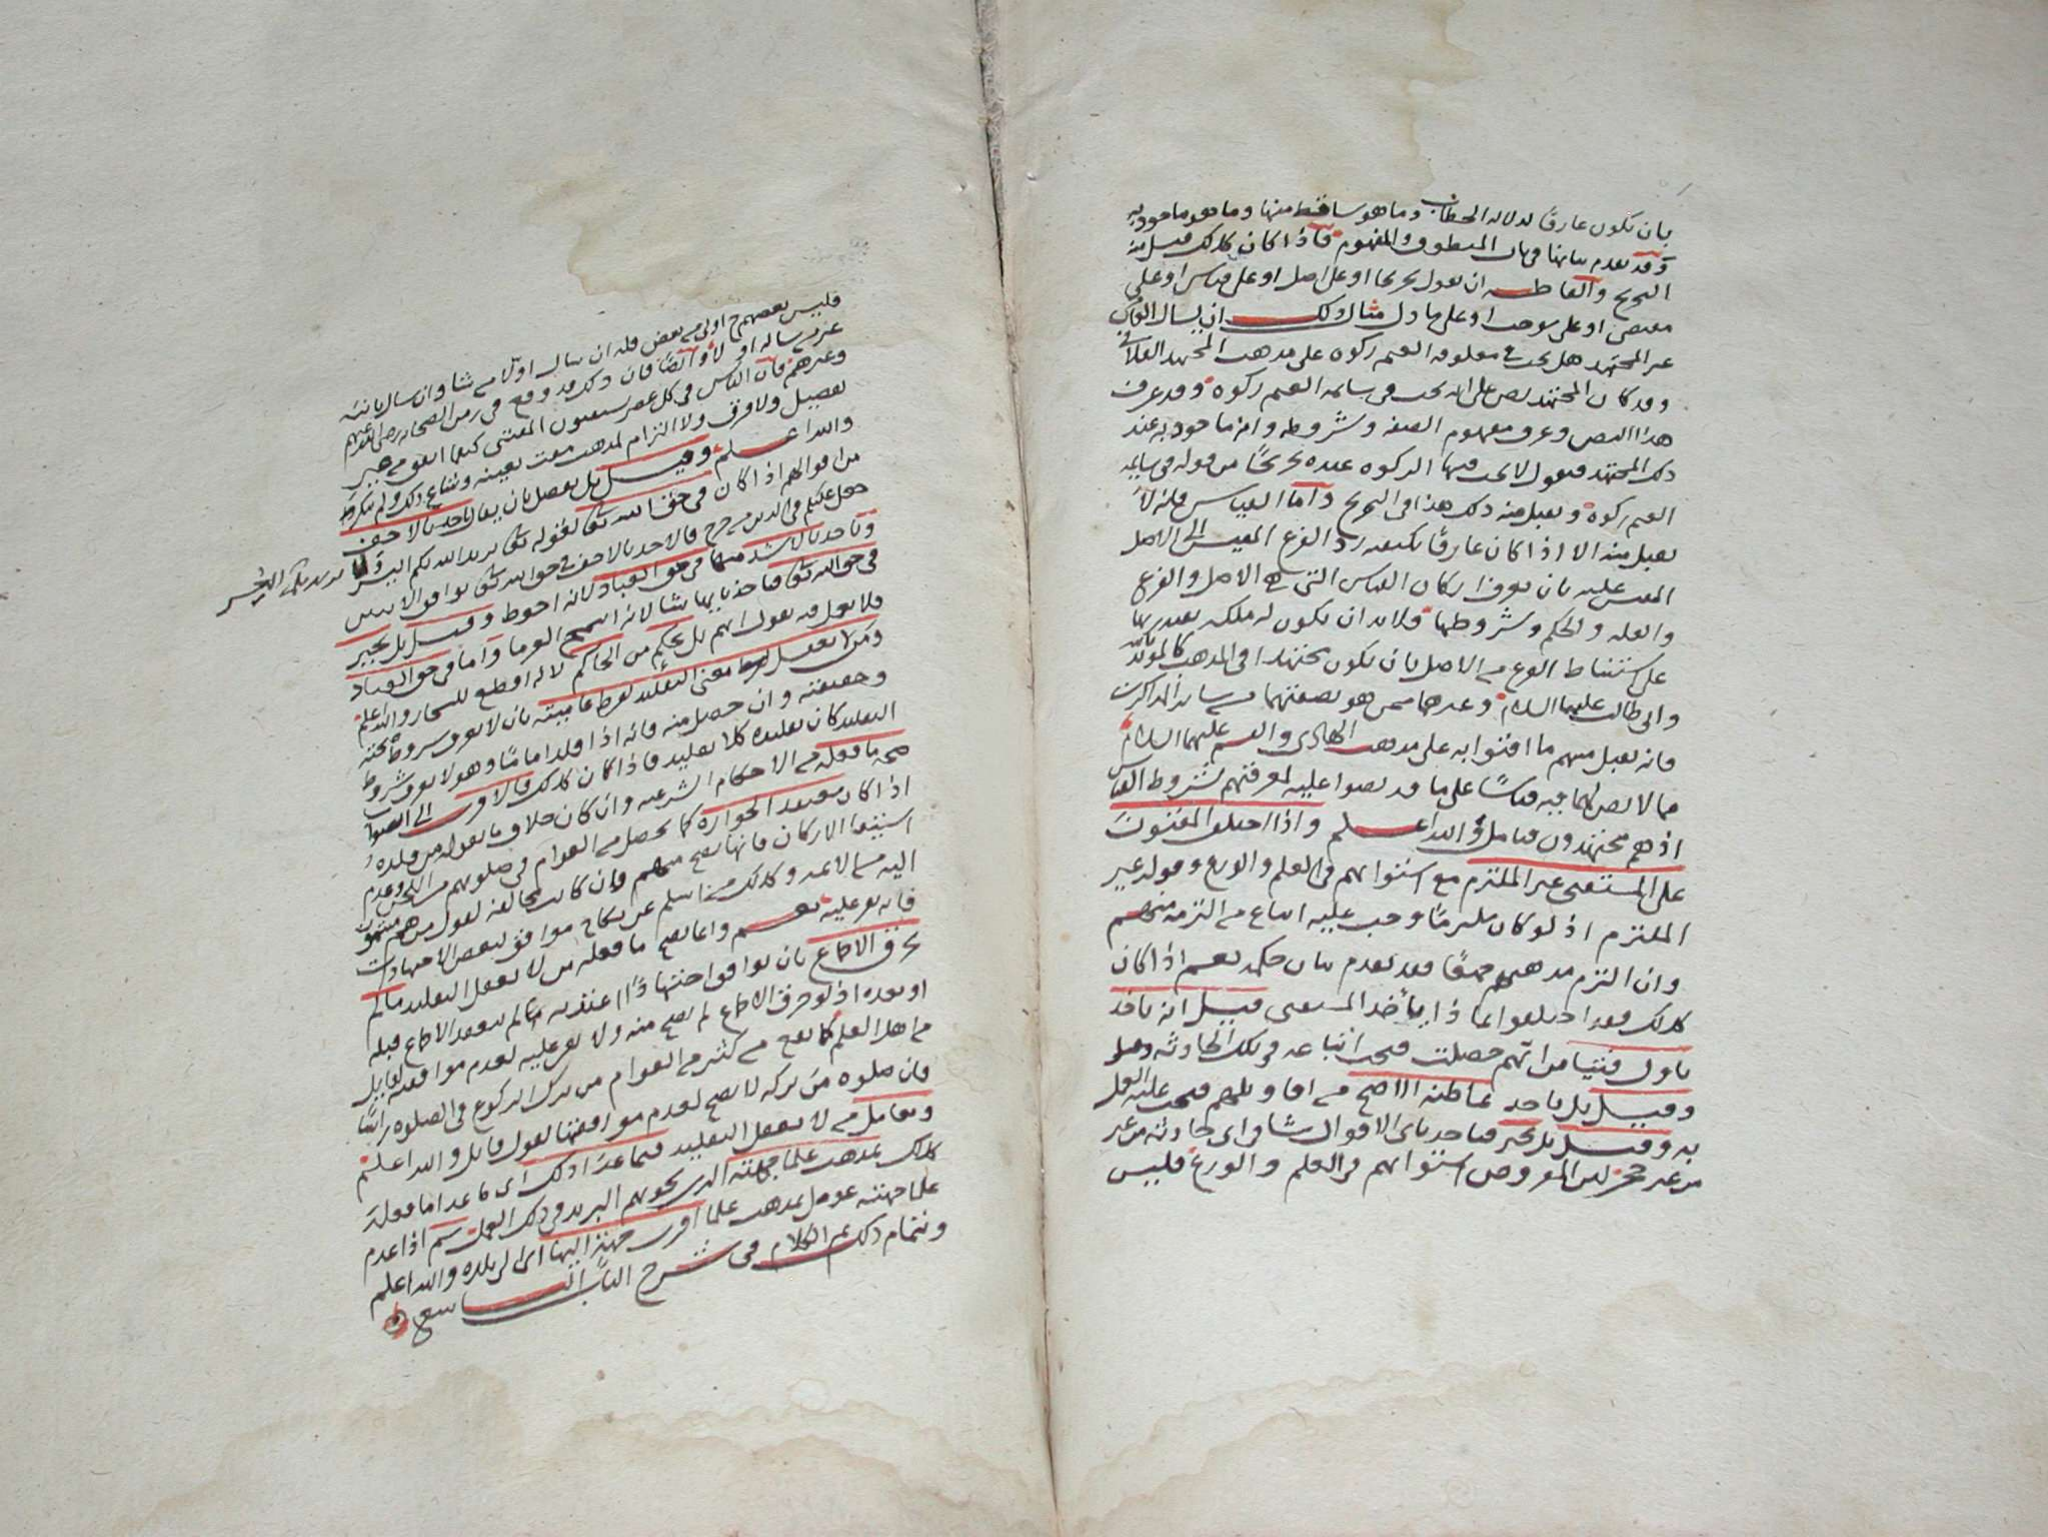 بان يكون عارفا لدلالة الخطاب وما هو ساقط منها وما هو ماخوذ به
وقد تقدم بيانها في باب المنطوق والمفهوم فاذا كان كذلك قبل منه
التخريج والفاظه ان يقول تخريجا او على اصل او على قياس او على
مقتضى او على موجب او على ما دل مثال ذلك ان يسال القايس
غير المجتهد هل يجب في معلوفة الغنم زكوة على مذهب المجتهد الفلاني
وقد كان المجتهد نص على انه يجب في سايمة الغنم زكوة وقد عرف
هذا النص وعرف مفهوم الصفة وشروطه وانه ماخوذ به عند
ذلك المجتهد فيقول لا يجب فيها الزكوة عنده تخريجا من قوله في سايمة
الغنم زكوة ويقبل منه ذلك هذا في التخريج واما القياس فانه لا
يقبل منه الا اذا كان عارفا بكيفية رد الفرع المقيس الى الاصل
المقيس عليه بان يعرف اركان القياس التي هي الاصل والفرع
والعلة والحكم وشروطها فلا بد ان يكون له ملكة يقتدر بها
على استنباط الفرع من الاصل بان يكون مجتهدا في المذهب كالمؤيد بالله
وابي طالب عليهما السلام وغيرهما ممن هو بصفتهما من سائر المذاكرين
فانه يقبل منهم ما افتوا به على مذهب الهادي والقسم عليهما السلام
مما لا نص لهما فيه قياسا على ما قد نصوا عليه لمعرفتهم شروط القياس
اذ هم مجتهدون فتامل والله اعلم واذا اختلف المفتون
على المستفتي غير الملتزم مع استوائهم في العلم والورع وقوله غير
الملتزم اذ لو كان ملتزما وجب عليه اتباع من التزمه منهم
وان التزم مذهبهم جميعا فقد تقدم بيان حكمه نعم اذا كان
كذلك فقد اختلفوا بماذا ياخذ المستفتي قيل انه ياخذ
باول فتيا من ايهم حصلت فيجب اتباعه في تلك الحادثة
وقيل بل ياخذ بما ظنه الاصح من اقاويلهم فيجب عليه العمل
به وقيل بل يخير فياخذ باي الاقوال شا في اي حادثة من غير
اذ المفروض استوائهم في العلم والورع فليس
فليس بعضهم ح اولى من بعض فله ان يسال اولا من شا وان يسال ثانيا
غير من ساله اولا وايضا فان ذلك قد وقع في زمن الصحابة رضي الله عنهم
وغيرهم فان الناس في كل عصر يستفتون المفتي كيفما اتفق من غير
تفصيل ولا فرق ولا التزام لمذهب مفت بعينه وشاع ذلك ولم ينكر قط
والله اعلم وقيل بل يفصل بان يقال ياخذ بالاخف
من اقوالهم اذا كان في حق الله تعالى لقوله تعالى يريد الله بكم اليسر
جعل عليكم في الدين من حرج فالاخذ بالاخف في حق الله تعالى يوافق الآيتين
وياخذ بالاشد منها في حق العباد لانه احوط وقيل بل يخير
في حق الله تعالى فياخذ بايها شا واما في حق العباد
فلا يعمل فيه بقول ايهم بل بحكم من الحاكم لانه اقطع للشجار والله اعلم
ومن لا يعقل معنى التقليد لفرط عاميته بان لا يعرف شروط صحته
وحقيقته وان حصل منه فانه اذا قلد اماما وهو لا يعرف شروط
التقليد كان تقليده كلا تقليد فاذا كان كذلك فالاقرب الى الصواب
صحة ما فعله من الاحكام الشرعية وان كان خلاف ما يقوله من قلده
اذا كان معتقدا لجوازه كما يحصل من العوام في صلوتهم من اللحن وعدم
استيفا الاركان فانها تصح منهم وان كانت مخالفة لقول من هم منتمون
اليه من الائمة وكذلك من اسلم عن نكاح موافق لبعض الاجتهادات
فانه يقر عليه نعم وانما يصح ما فعله من لا يعقل التقليد ما لم
يخرق الاجماع بان يوافق اجتهادا اعتد به لم ينعقد الاجماع قبله
او بعده اذ لو خرق الاجماع لم يصح منه ولا يقر عليه لعدم موافقة لقايل
من اهل العلم كما يقع من كثير من العوام من ترك الركوع في الصلوة راسا
فان صلوة من تركه لا تصح لعدم موافقتها لقول قايل والله اعلم
ويعامل من لا يعقل التقليد فيما عدا ذلك اي ما عدا ما فعله
كذلك بمذهب علما جهته الذي يحويهم البريد في ذلك العمل ثم اذا عدم
علما جهته عومل بمذهب علما اقرب جهة اليها اي الى بلده والله اعلم
وبتمام ذلك تم الكلام في شرح الباب التاسع